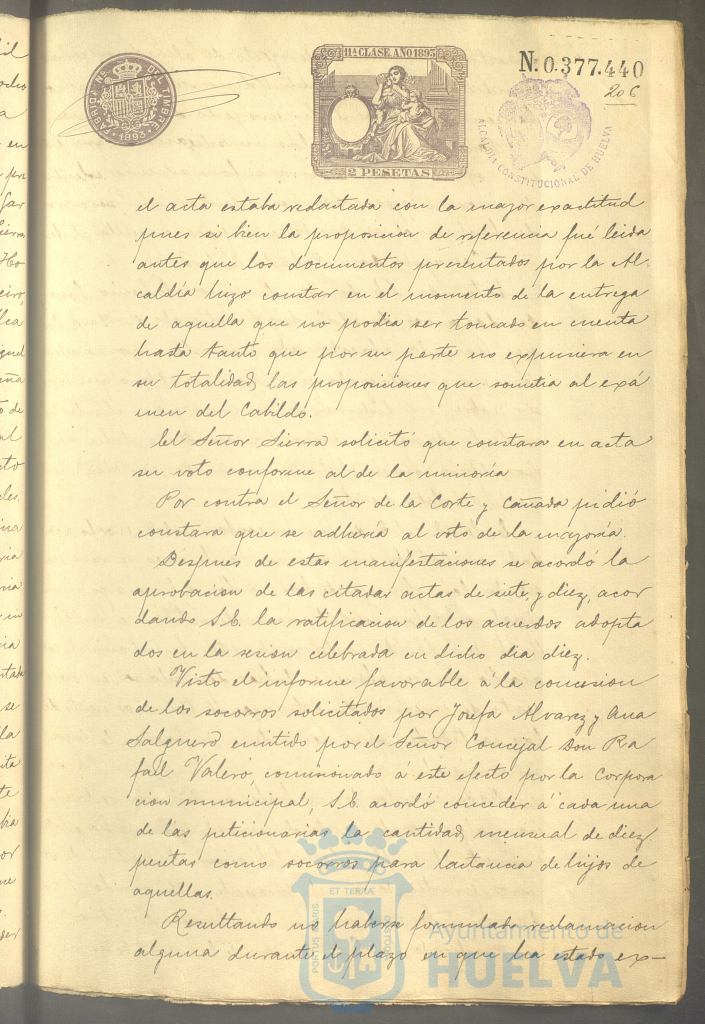 FABRICA NL. DEL TIMBRE
1893
11ª CLASE. AÑO 1893
2 PESETAS
N.º 0.377.440
206
ALCALDIA CONSTITUCIONAL DE HUELVA
el acta estaba redactada con la mayor exactitud
pues si bien la proposicion de referencia fué leida
antes que los documentos presentados por la Al
caldía hizo constar en el momento de la entrega
de aquella que no podia ser tomado en cuenta
hasta tanto que por su parte no expusiera en
su totalidad, las proposiciones que sometia al exá
men del Cabildo.
El Señor Sierra solicitó que constara en acta
su voto conforme al de la minoría
Por contra el Señor de la Corte y Cañada pidió
constara que se adheria al voto de la mayoría.
Despues de estas manifestaciones se acordó la
aprobacion de las citadas actas de siete, y diez, acor
dando S.E. la ratificacion de los acuerdos adopta
dos en la sesion celebrada en dicho dia diez.
Visto el informe favorable á la concesion
de los socorros solicitados por Josefa Alvarez y Ana
Salguero emitido por el Señor Concejal Don Ra
fael Valero, comisionado á este efecto por la Corpora
cion municipal, S.E. acordó conceder á cada una
de las peticionarias la cantidad, mensual de diez
pesetas como socorros para lactancia de hijos de
aquellas.
Resultando no haberse formulado reclamacion
alguna durante el plazo en que ha estado ex-
PORTUS MARIS ET TERRAE CUSTODIA
Ayuntamiento de
HUELVA